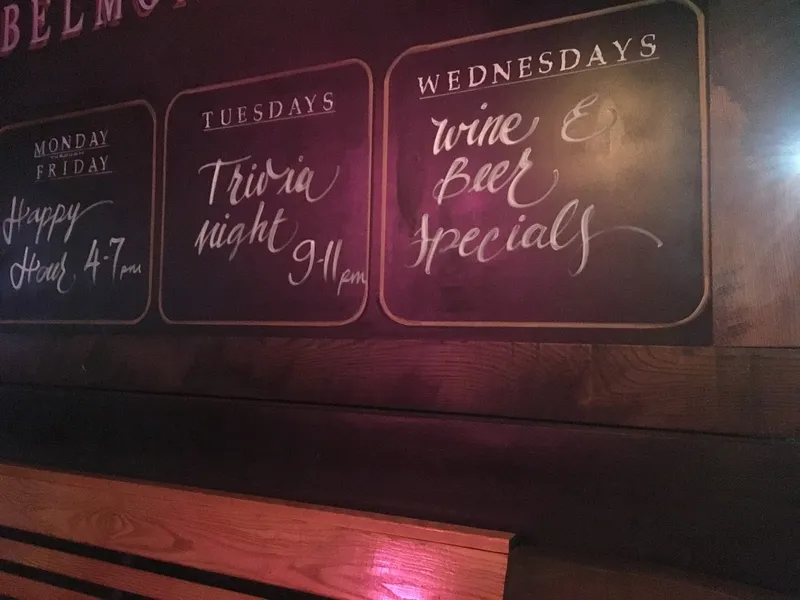 MONDAY
FRIDAY
Happy
Hour 4-7pm
TUESDAYS
Trivia
night
9-11pm
WEDNESDAYS
wine &
Beer
specials